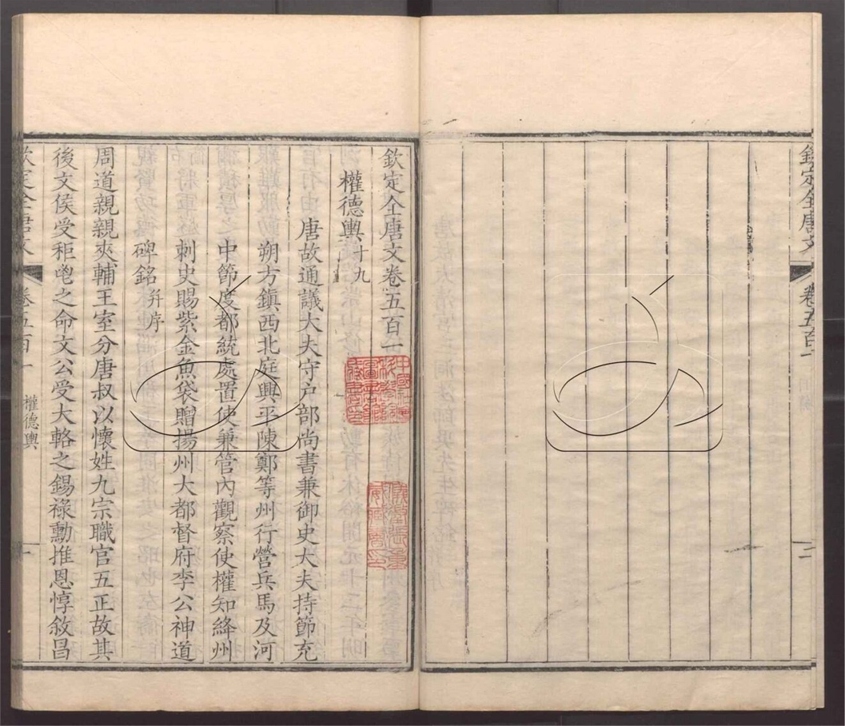 欽定全唐文卷五百一
權德輿十九
唐故通議大夫守戶部尚書兼御史大夫持節充
朔方鎮西北庭興平陳鄭等州行營兵馬及河
中節度都統處置使兼管內觀察使權知絳州
刺史賜紫金魚袋贈揚州大都督府李公神道
碑銘并序
周道親親夾輔王室分唐叔以懷姓九宗職官五正故其
後文侯受秬鬯之命文公受大輅之錫祿勳推恩惇敘昌
欽定全唐文 卷五百一 權德輿 一